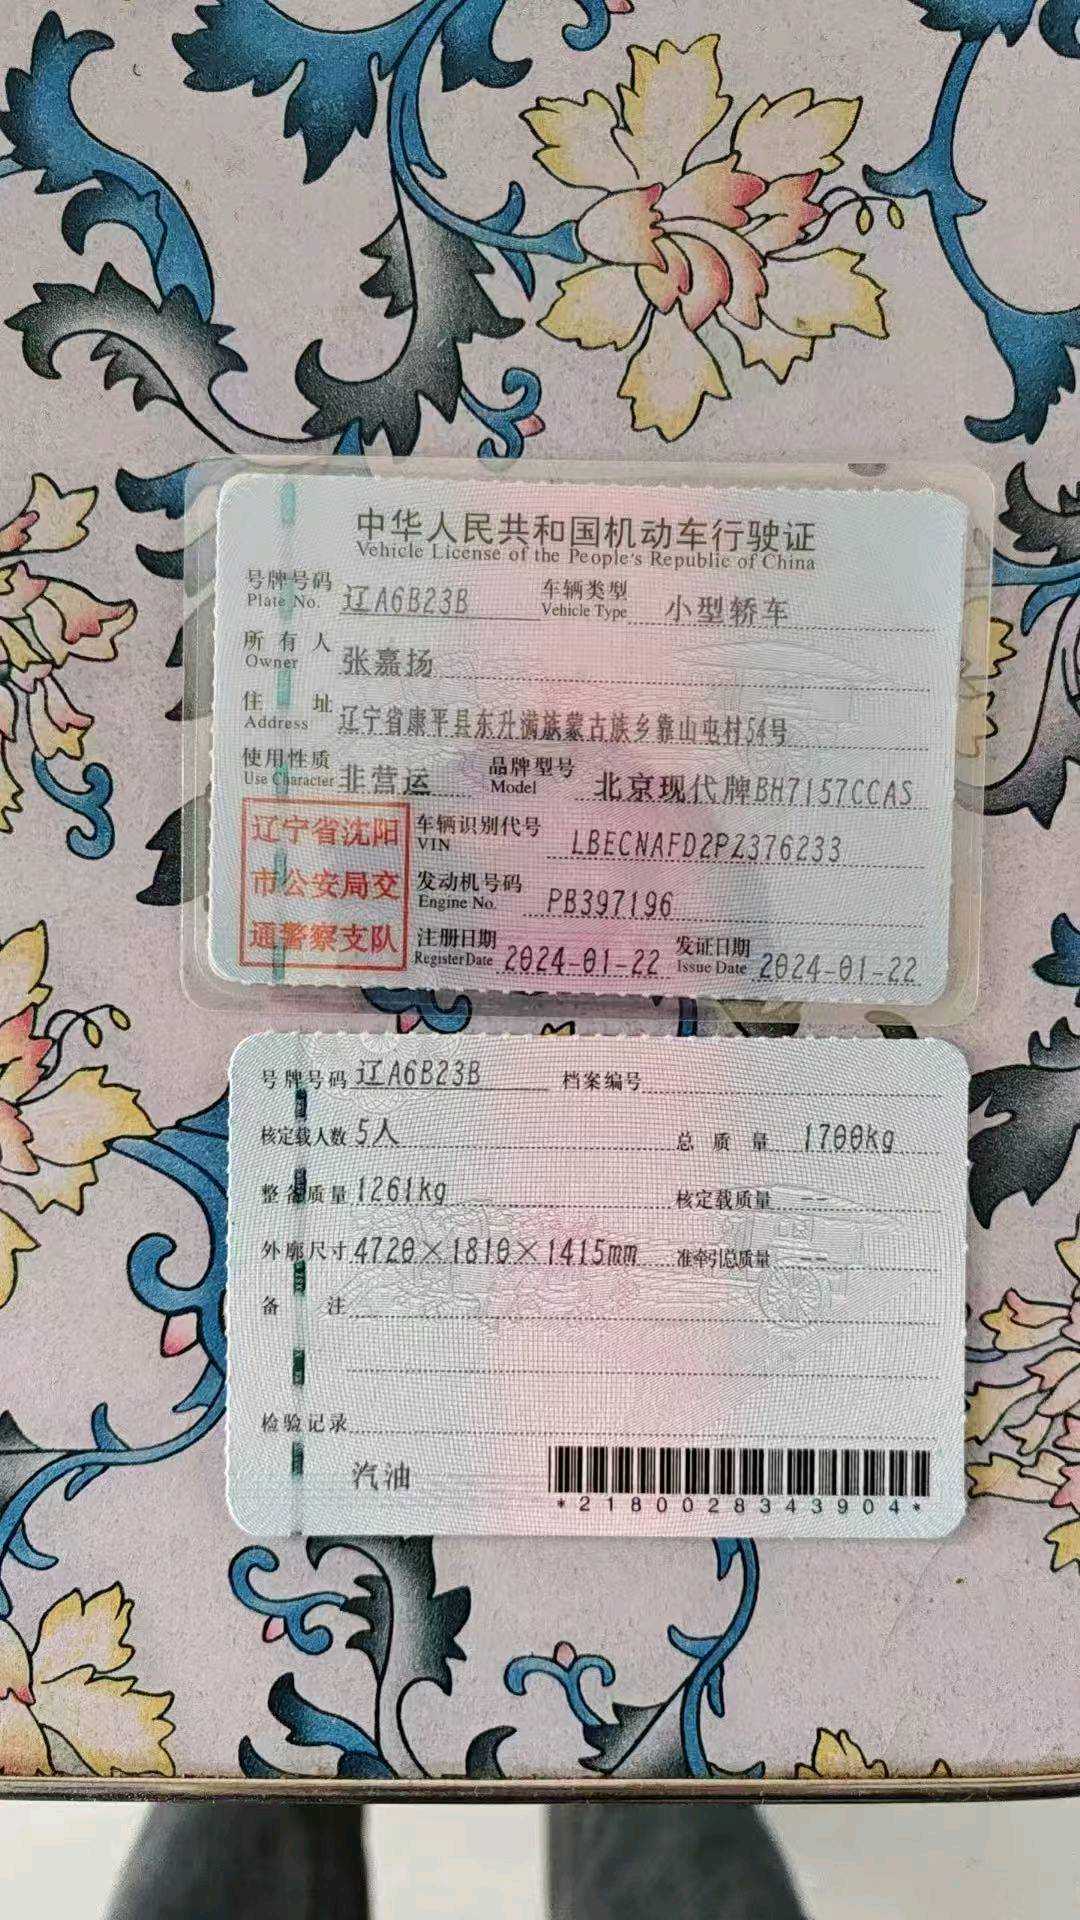 中华人民共和国机动车行驶证
Vehicle License of the People's Republic of China
号牌号码 辽A6B23B 车辆类型 小型轿车
Plate No. Vehicle Type
所有人 张嘉扬
Owner
住址 辽宁省康平县东升满族蒙古族乡靠山屯村54号
Address
使用性质 非营运 品牌型号 北京现代牌BH7157CCAS
Use Character Model
辽宁省沈阳
市公安局交
通警察支队
车辆识别代号 LBECNAFD2PZ376233
VIN
发动机号码 PB397196
Engine No.
注册日期 2024-01-22 发证日期 2024-01-22
Register Date Issue Date
号牌号码 辽A6B23B 档案编号
核定载人数 5人 总质量 1700kg
整备质量 1261kg 核定载质量 --
外廓尺寸 4720×1810×1415mm 准牵引总质量 --
备注
检验记录
汽油
*2180028343904*